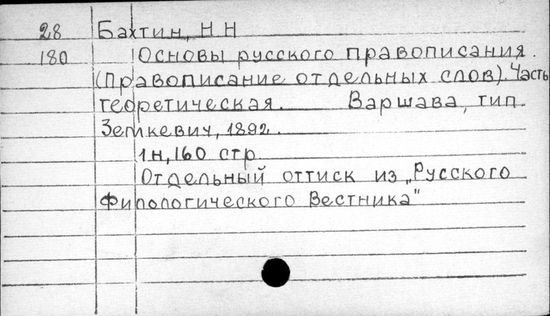 28 Бахтин, Н Н
180 Основы русского правописания.
(Правописание отдельных слов). Часть
теоретическая. Варшава, тип
Земкевич, 1892.
1н, 160 стр
Отдельный оттиск из „Русского
Филологического Вестника"